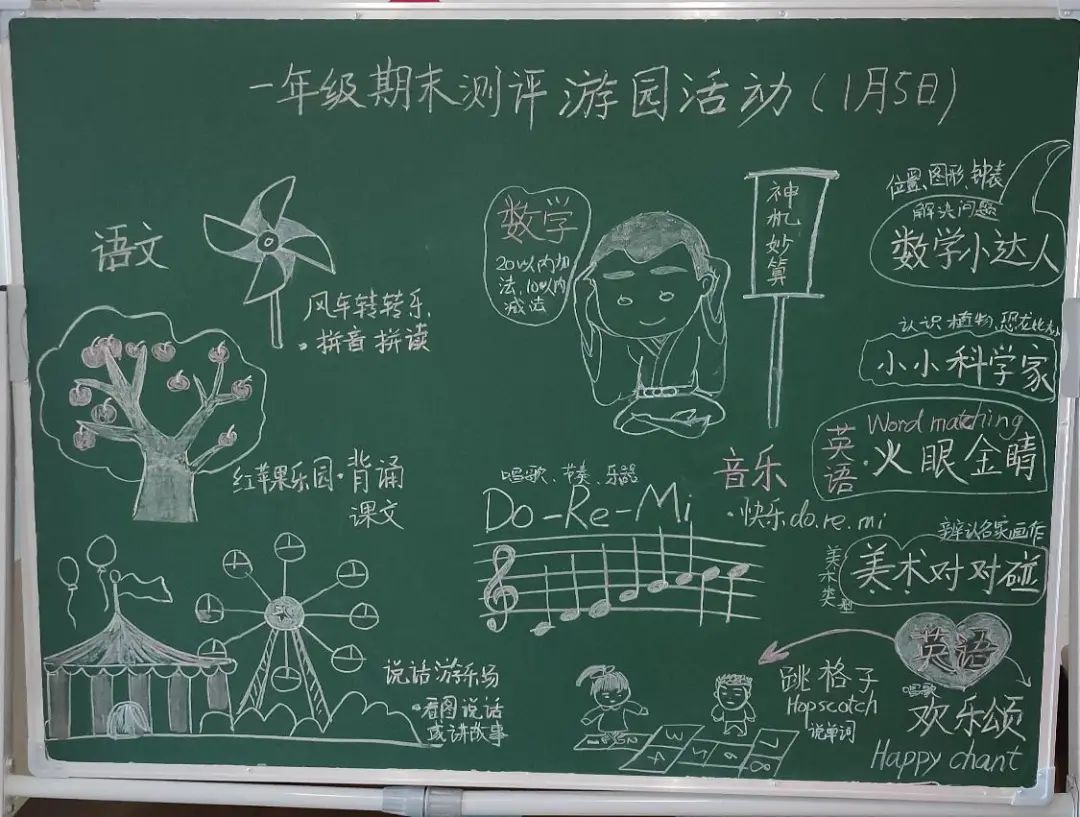 一年级期末测评游园活动(1月5日)
语文
风车转转乐
·拼音拼读
红苹果乐园·背诵
课文
说话游乐场
·看图说话
或讲故事
数学
20以内加
法、10以内
减法
神机妙算
位置、图形、钟表
解决问题
数学小达人
认识植物、恐龙
小小科学家
英语
Word matching
·火眼金睛
音乐
·快乐do.re.mi
唱歌、节奏、乐器
Do-Re-Mi
辨认名家画作
美术类
美术对对碰
英语
跳格子
Hopscotch
说单词
唱歌
欢乐颂
Happy chant